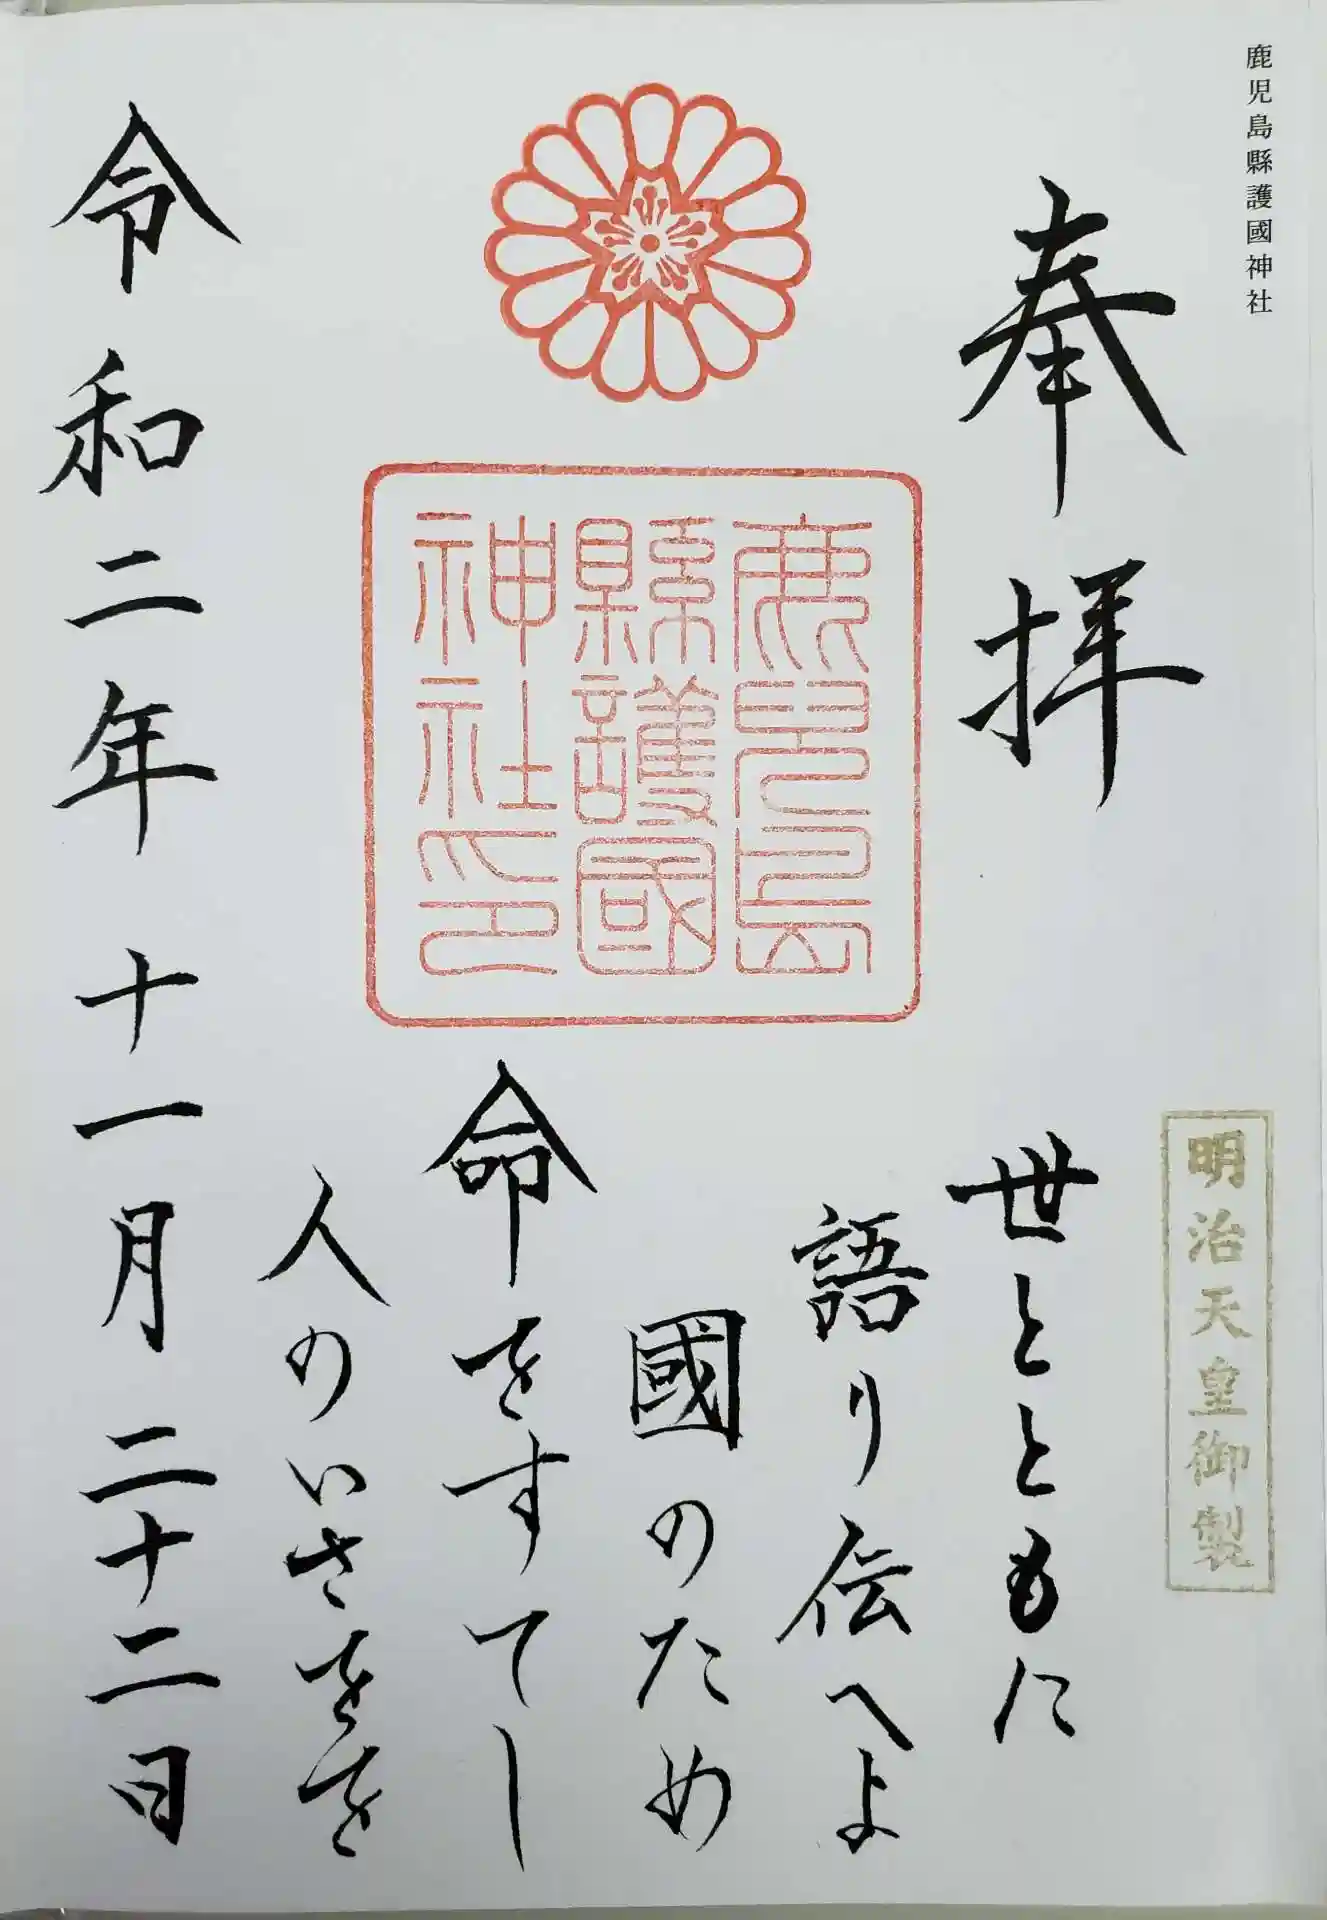 鹿児島縣護國神社
奉拝
明治天皇御製
鹿児島
縣護國
神社印
世とともに
語り伝へよ
國のため
命をすてし
人のいさををを
令和二年十一月二十二日